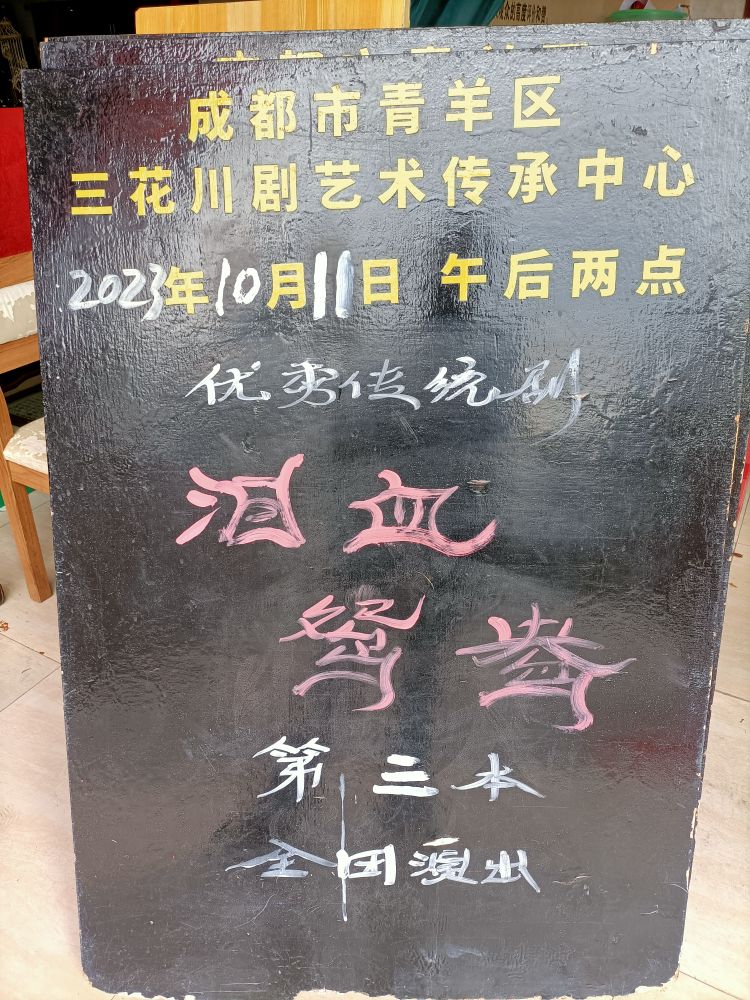 众的高度评价和赞
成都市青羊区
三花川剧艺术传承中心
2023年10月11日 午后两点
优秀传统剧
泪血
鸳鸯
第三本
全团演出